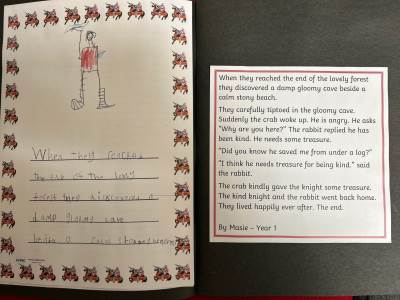 When they reached
the end of the lovely
forest they discovered a
damp gloomy cave
beside a calm
When they reached the end of the lovely forest
they discovered a damp gloomy cave beside a
calm stony beach.
They carefully tiptoed in the gloomy cave.
Suddenly the crab woke up. He is angry. He asks
"Why are you here?" The rabbit replied he has
been kind. He needs some treasure.
"Did you know he saved me from under a log?"
"I think he needs treasure for being kind." said
the rabbit.
The crab kindly gave the knight some treasure.
The kind knight and the rabbit went back home.
They lived happily ever after. The end.
By Masie – Year 1